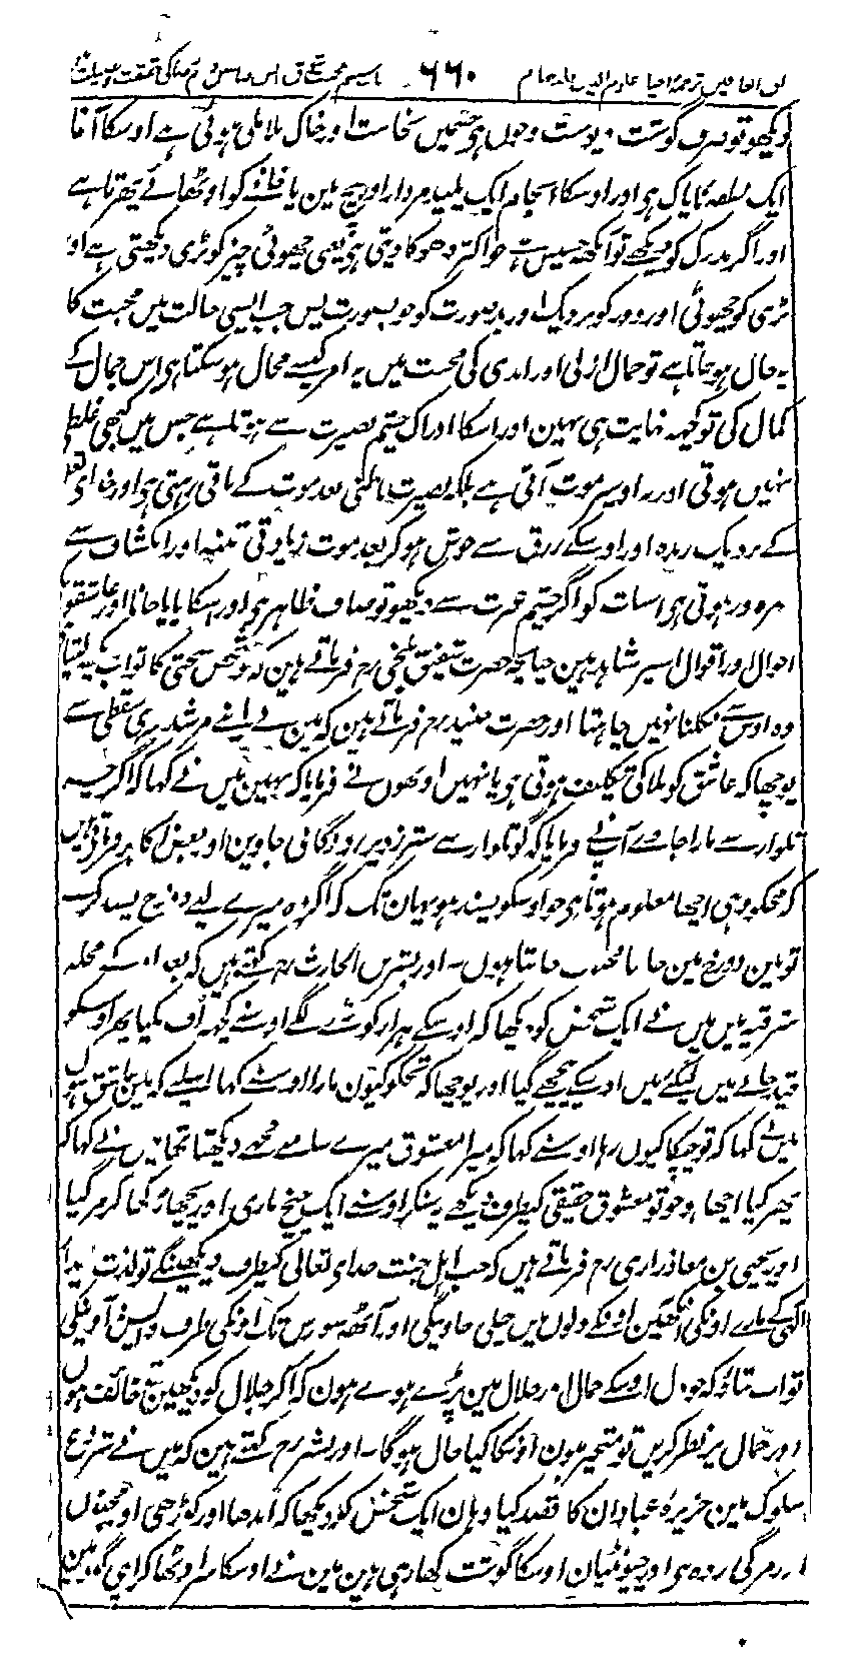 ترجمہ احیاء علوم الدین جلد چہارم ۶۶۰ باب ششم محبت
دیکھو تو صرف گوشت و پوست و خون ہی جسمیں نجاست اور خاک بلا ملی ہوئی ہے اوسکا آغاز
ایک نطفہ ناپاک ہی اور اوسکا انجام ایک پلید مردار اور بیچ مین پاخانے کو اوٹھائے پھرتا ہے
اور اگر مدرک کو دیکھے تو آنکھ خسیس ہے جو اکثر دھوکا دیتی ہی یعنی چھوٹی چیز کو بڑی دیکھتی ہے اور
بڑی کو چھوٹی اور دور کو نزدیک اور بدصورت کو خوبصورت پس جب ایسی حالت میں محبت کا
یہ حال ہو جاتا ہے تو جمال ازلی اور ابدی کی محبت میں یہ امر کیسے محال ہو سکتا ہی اس جمال کے
کمال کی تو کچہہ نہایت ہی نہین اور اسکا ادراک چشم بصیرت سے ہوتا ہے جس میں کبھی غلطی
نہیں ہوتی اور نہ اوسپر موت آتی ہے بلکہ بصیرت باطنی بعد موت کے باقی رہتی ہی اور خدای تعالی
کے نزدیک زندہ اور اوسکے رزق سے خوش ہو کر بعد موت زیادتی تنبیہ اور انکشاف سے
بہرہ ور ہوتی ہی اس بات کو اگر چشم عبرت سے دیکھو تو صاف ظاہر ہی اور اسکا پایا جانا اور عاشقونکے
احوال اور اقوال اسپر شاہد ہین چنانچہ حضرت شفیق بلخی رح فرماتے ہین کہ جو شخص سختی کا ثواب دیکھ لیتا ہے
وہ اوس سے نکلنا نہیں چاہتا اور حضرت جنید رح فرماتے ہین کہ مین نے اپنے مرشد سری سقطی سے
پوچھا کہ عاشق کو بلا کی تکلیف ہوتی ہی یا نہیں اونھوں نے فرمایا کہ نہین میں نے کہا کہ اگرچہ
تلوار سے مارا جاوے آپ نے فرمایا کہ گو تلوار سے ستر زد پر زد لگائی جاوین اور بعض اکابر فرماتے ہیں
کہ مجکو وہی اچھا معلوم ہوتا ہی جو اوسکو پسند ہو یہان تک کہ اگر وہ میرے لیے دوزخ پسند کرے
تو مین دوزخ مین جانا محبوب جانتا ہوں۔ اور بشر بن الحارث رح کہتے ہیں کہ بغداد کے محلہ
شرقیہ میں میں نے ایک شخص کو دیکھا کہ اوسکے ہزار کوڑے لگے اوسنے کچہہ اُف نکیا پھر اوسکو
قید خانے میں لیگئے میں اوسکے پیچھے گیا اور پوچھا کہ تجکو کیوں مارا اوسنے کہا اسلیے کہ مین عاشق ہوں
میں نے کہا کہ تو چپکا کیوں رہا اوسنے کہا کہ میرا معشوق میرے سامنے مجھے دیکھتا تھا میں نے کہا کہ
پھر کیا اچھا ہو جو تو معشوق حقیقی کیطرف دیکھے یہ سنکر اوسنے ایک چیخ ماری اور پچھاڑ کھا کر مر گیا
اور یحیی بن معاذ رازی رح فرماتے ہیں کہ جب اہل جنت خدای تعالی کیطرف دیکھینگے تو لذت دیدار
الٰہی کے مارے اونکی آنکھین اونکے دلوں میں چلی جاوینگی اور آٹھ سو برس تک اونکی طرف واپس نہ آوینگی
تو اب بتاؤ کہ جو دل اوسکے جمال و جلال مین پڑے ہوے ہون کہ اگر جلال کو دیکھین تو خائف ہوں
اور جمال پر نظر کریں تو متحیر ہون اونکا کیا حال ہوگا۔ اور بشر رح کہتے ہین کہ میں نے شروع
سلوک مین جزیرۂ عبادان کا قصد کیا وہان ایک شخص کو دیکھا کہ اندھا اور کوڑھی اور مجنون
اور مرگی زدہ ہی اور چیونٹیان اوسکا گوشت کھا رہی ہین مین نے اوسکا سر اوٹھا کر اپنی گود مین